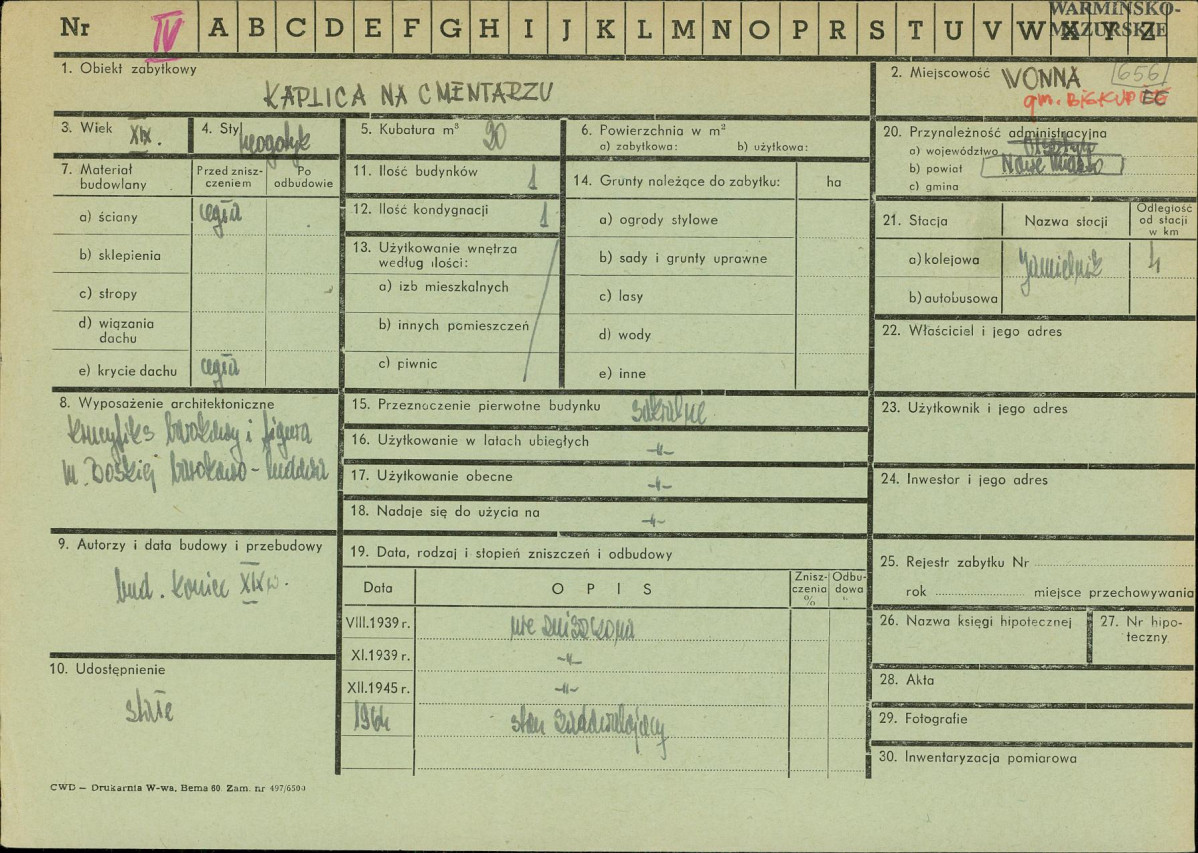 WARMIŃSKO-
MAZURSKIE
Nr IV A B C D E F G H I J K L M N O P R S T U V W X Y Z
1. Obiekt zabytkowy
KAPLICA NA CMENTARZU
2. Miejscowość WONNA 656
gm. BISKUPIEC
3. Wiek XIX.
4. Styl neogotyk
5. Kubatura m³ 90
6. Powierzchnia w m²
a) zabytkowa: b) użytkowa:
7. Materiał budowlany
Przed zniszczeniem
Po odbudowie
a) ściany cegła
b) sklepienia
c) stropy
d) wiązania dachu
e) krycie dachu cegła
8. Wyposażenie architektoniczne
krucyfiks barokowy i figura
M. Boskiej barokowo-ludowa
9. Autorzy i data budowy i przebudowy
bud. koniec XIX w.
10. Udostępnienie
stałe
11. Ilość budynków 1
12. Ilość kondygnacji 1
13. Użytkowanie wnętrza
według ilości:
a) izb mieszkalnych
b) innych pomieszczeń
c) piwnic
14. Grunty należące do zabytku: ha
a) ogrody stylowe
b) sady i grunty uprawne
c) lasy
d) wody
e) inne
15. Przeznaczenie pierwotne budynku sakralne
16. Użytkowanie w latach ubiegłych -"-
17. Użytkowanie obecne -"-
18. Nadaje się do użycia na -"-
19. Data, rodzaj i stopień zniszczeń i odbudowy
Data O P I S Zniszczenia % Odbudowa
VIII.1939 r. nie zniszczona
XI.1939 r. -"-
XII.1945 r. -"-
1964 stan zadowalający
20. Przynależność administracyjna
a) województwo Olsztyn
b) powiat Nowe Miasto
c) gmina
21. Stacja Nazwa stacji Odległość od stacji w km
a) kolejowa Jamielnik 4
b) autobusowa
22. Właściciel i jego adres
23. Użytkownik i jego adres
24. Inwestor i jego adres
25. Rejestr zabytku Nr
rok miejsce przechowywania
26. Nazwa księgi hipotecznej
27. Nr hipoteczny
28. Akta
29. Fotografie
30. Inwentaryzacja pomiarowa
CWD — Drukarnia W-wa, Bema 60. Zam. nr 497/6500